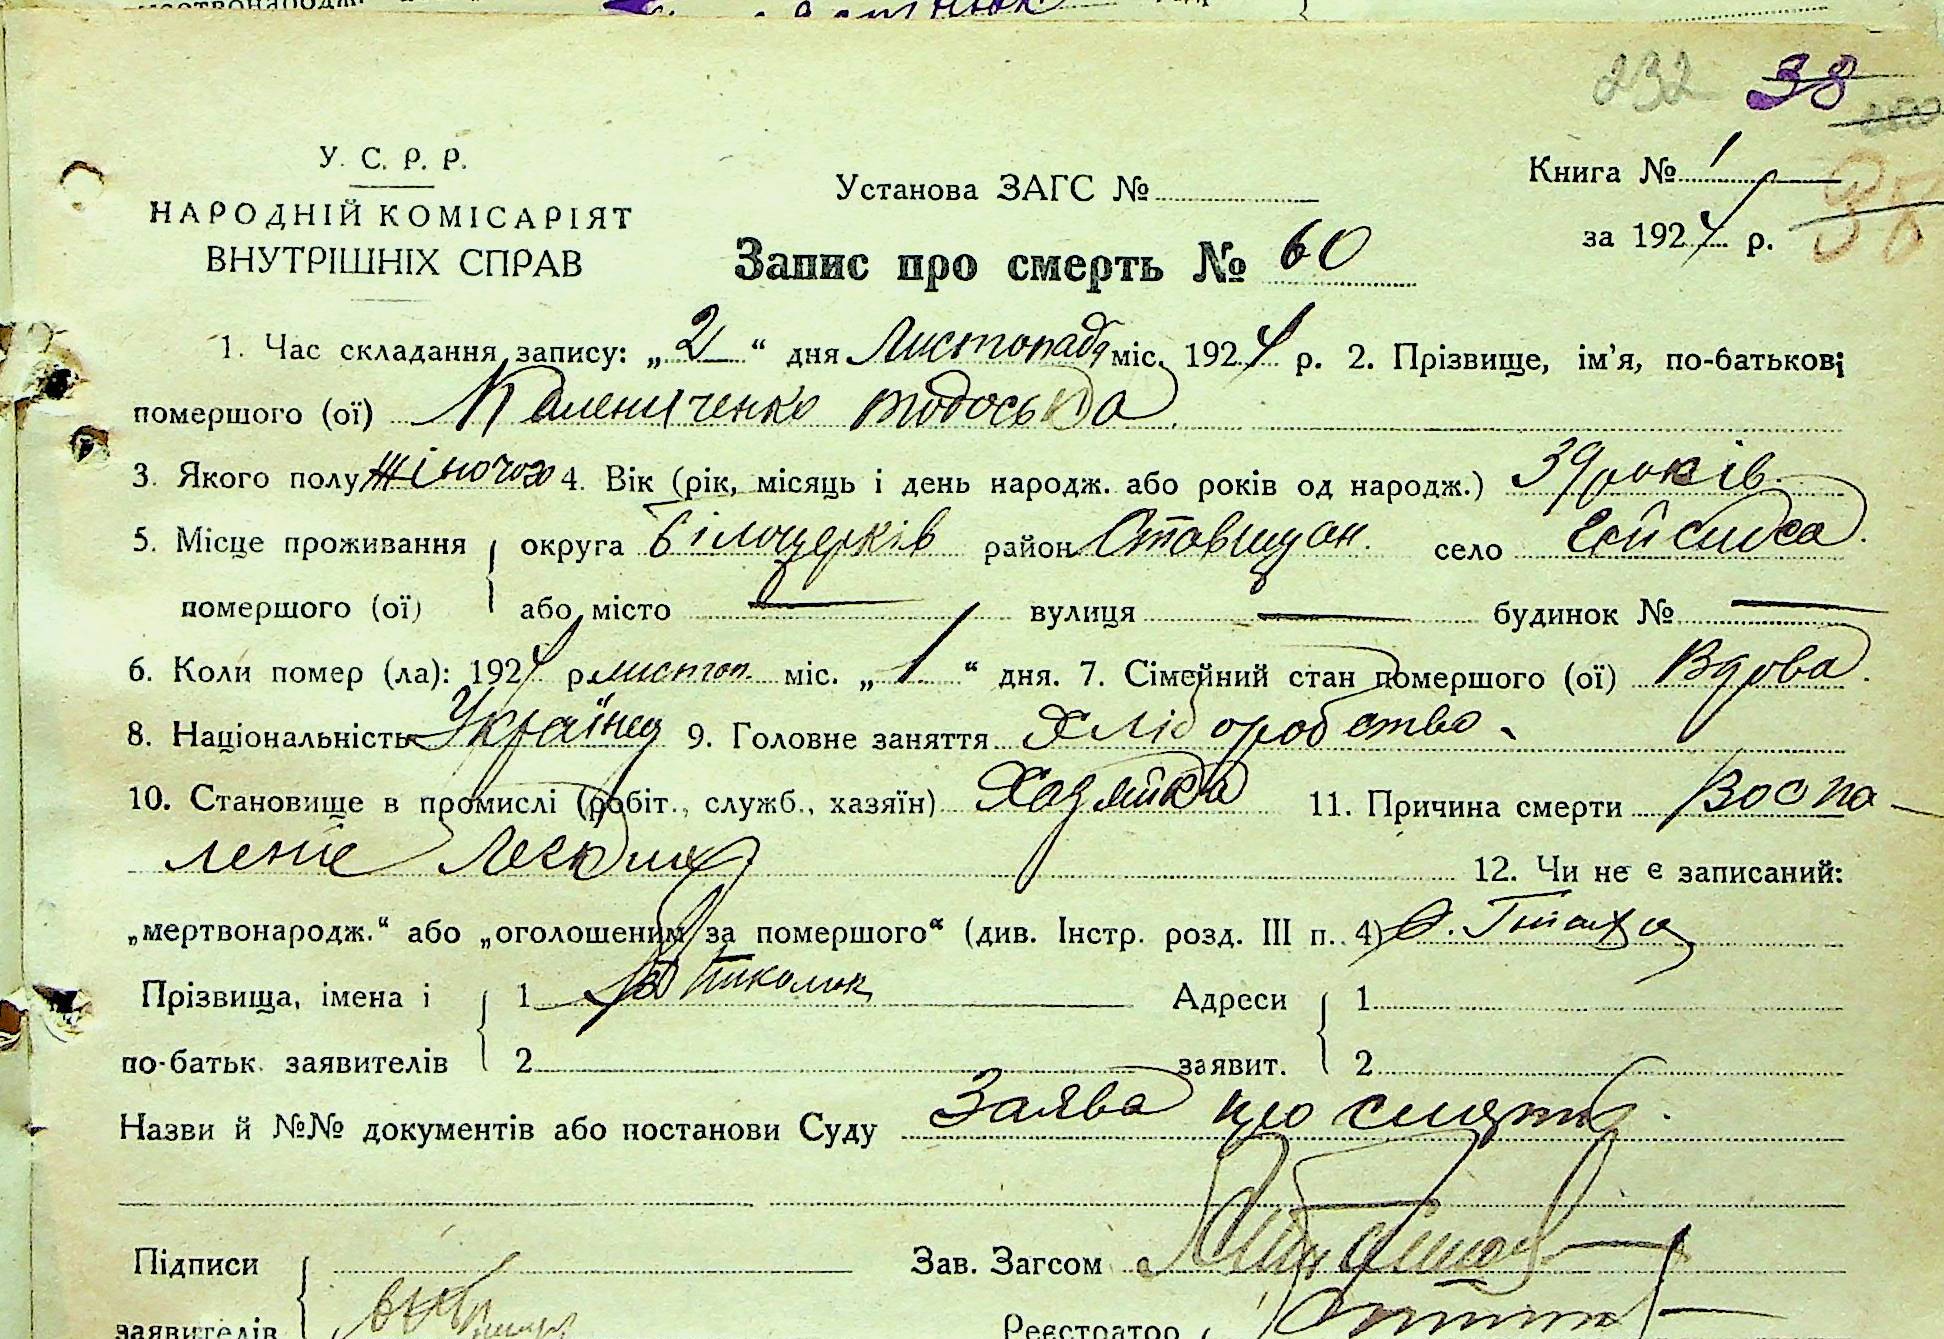 232 38
У. С. Р. Р.
НАРОДНІЙ КОМІСАРІЯТ
ВНУТРІШНІХ СПРАВ
Установа ЗАГС №
Книга № 1
за 1924 р.
38
Запис про смерть № 60
1. Час складання запису: „2“ дня Листопада міс. 1924 р. 2. Прізвище, ім'я, по-батькові
помершого (ої) Каленіченко Тодоська
3. Якого полу Жіночого 4. Вік (рік, місяць і день народж. або років од народж.) 39 років
5. Місце проживання округа Білоцерків район Ставищан. село
помершого (ої) або місто — вулиця — будинок № —
6. Коли помер (ла): 1924 р листоп. міс. „1“ дня. 7. Сімейний стан помершого (ої) Вдова.
8. Національність Українец 9. Головне заняття Хліборобство
10. Становище в промислі (робіт., служб., хазяїн) Хазяйка 11. Причина смерти Воспа-
леніє Легких 12. Чи не є записаний:
„мертвонародж.“ або „оголошеним за помершого“ (див. Інстр. розд. III п. 4)
Прізвища, імена і 1 Адреси 1
по-батьк. заявителів 2 заявит. 2
Назви й №№ документів або постанови Суду Заява про смерть.
Підписи Зав. Загсом
заявителів Реєстратор